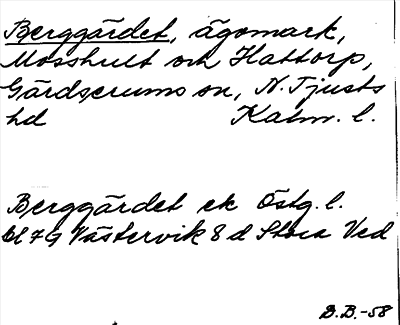 Berggärdet, ägomark,
Mosshult och Hattorp,
Gärdserums sn, N. Tjusts
hd Kalm. l.
Berggärdet ek Östg. l.
bl 7G Västervik 8 d Stora Ved
B.B.-58